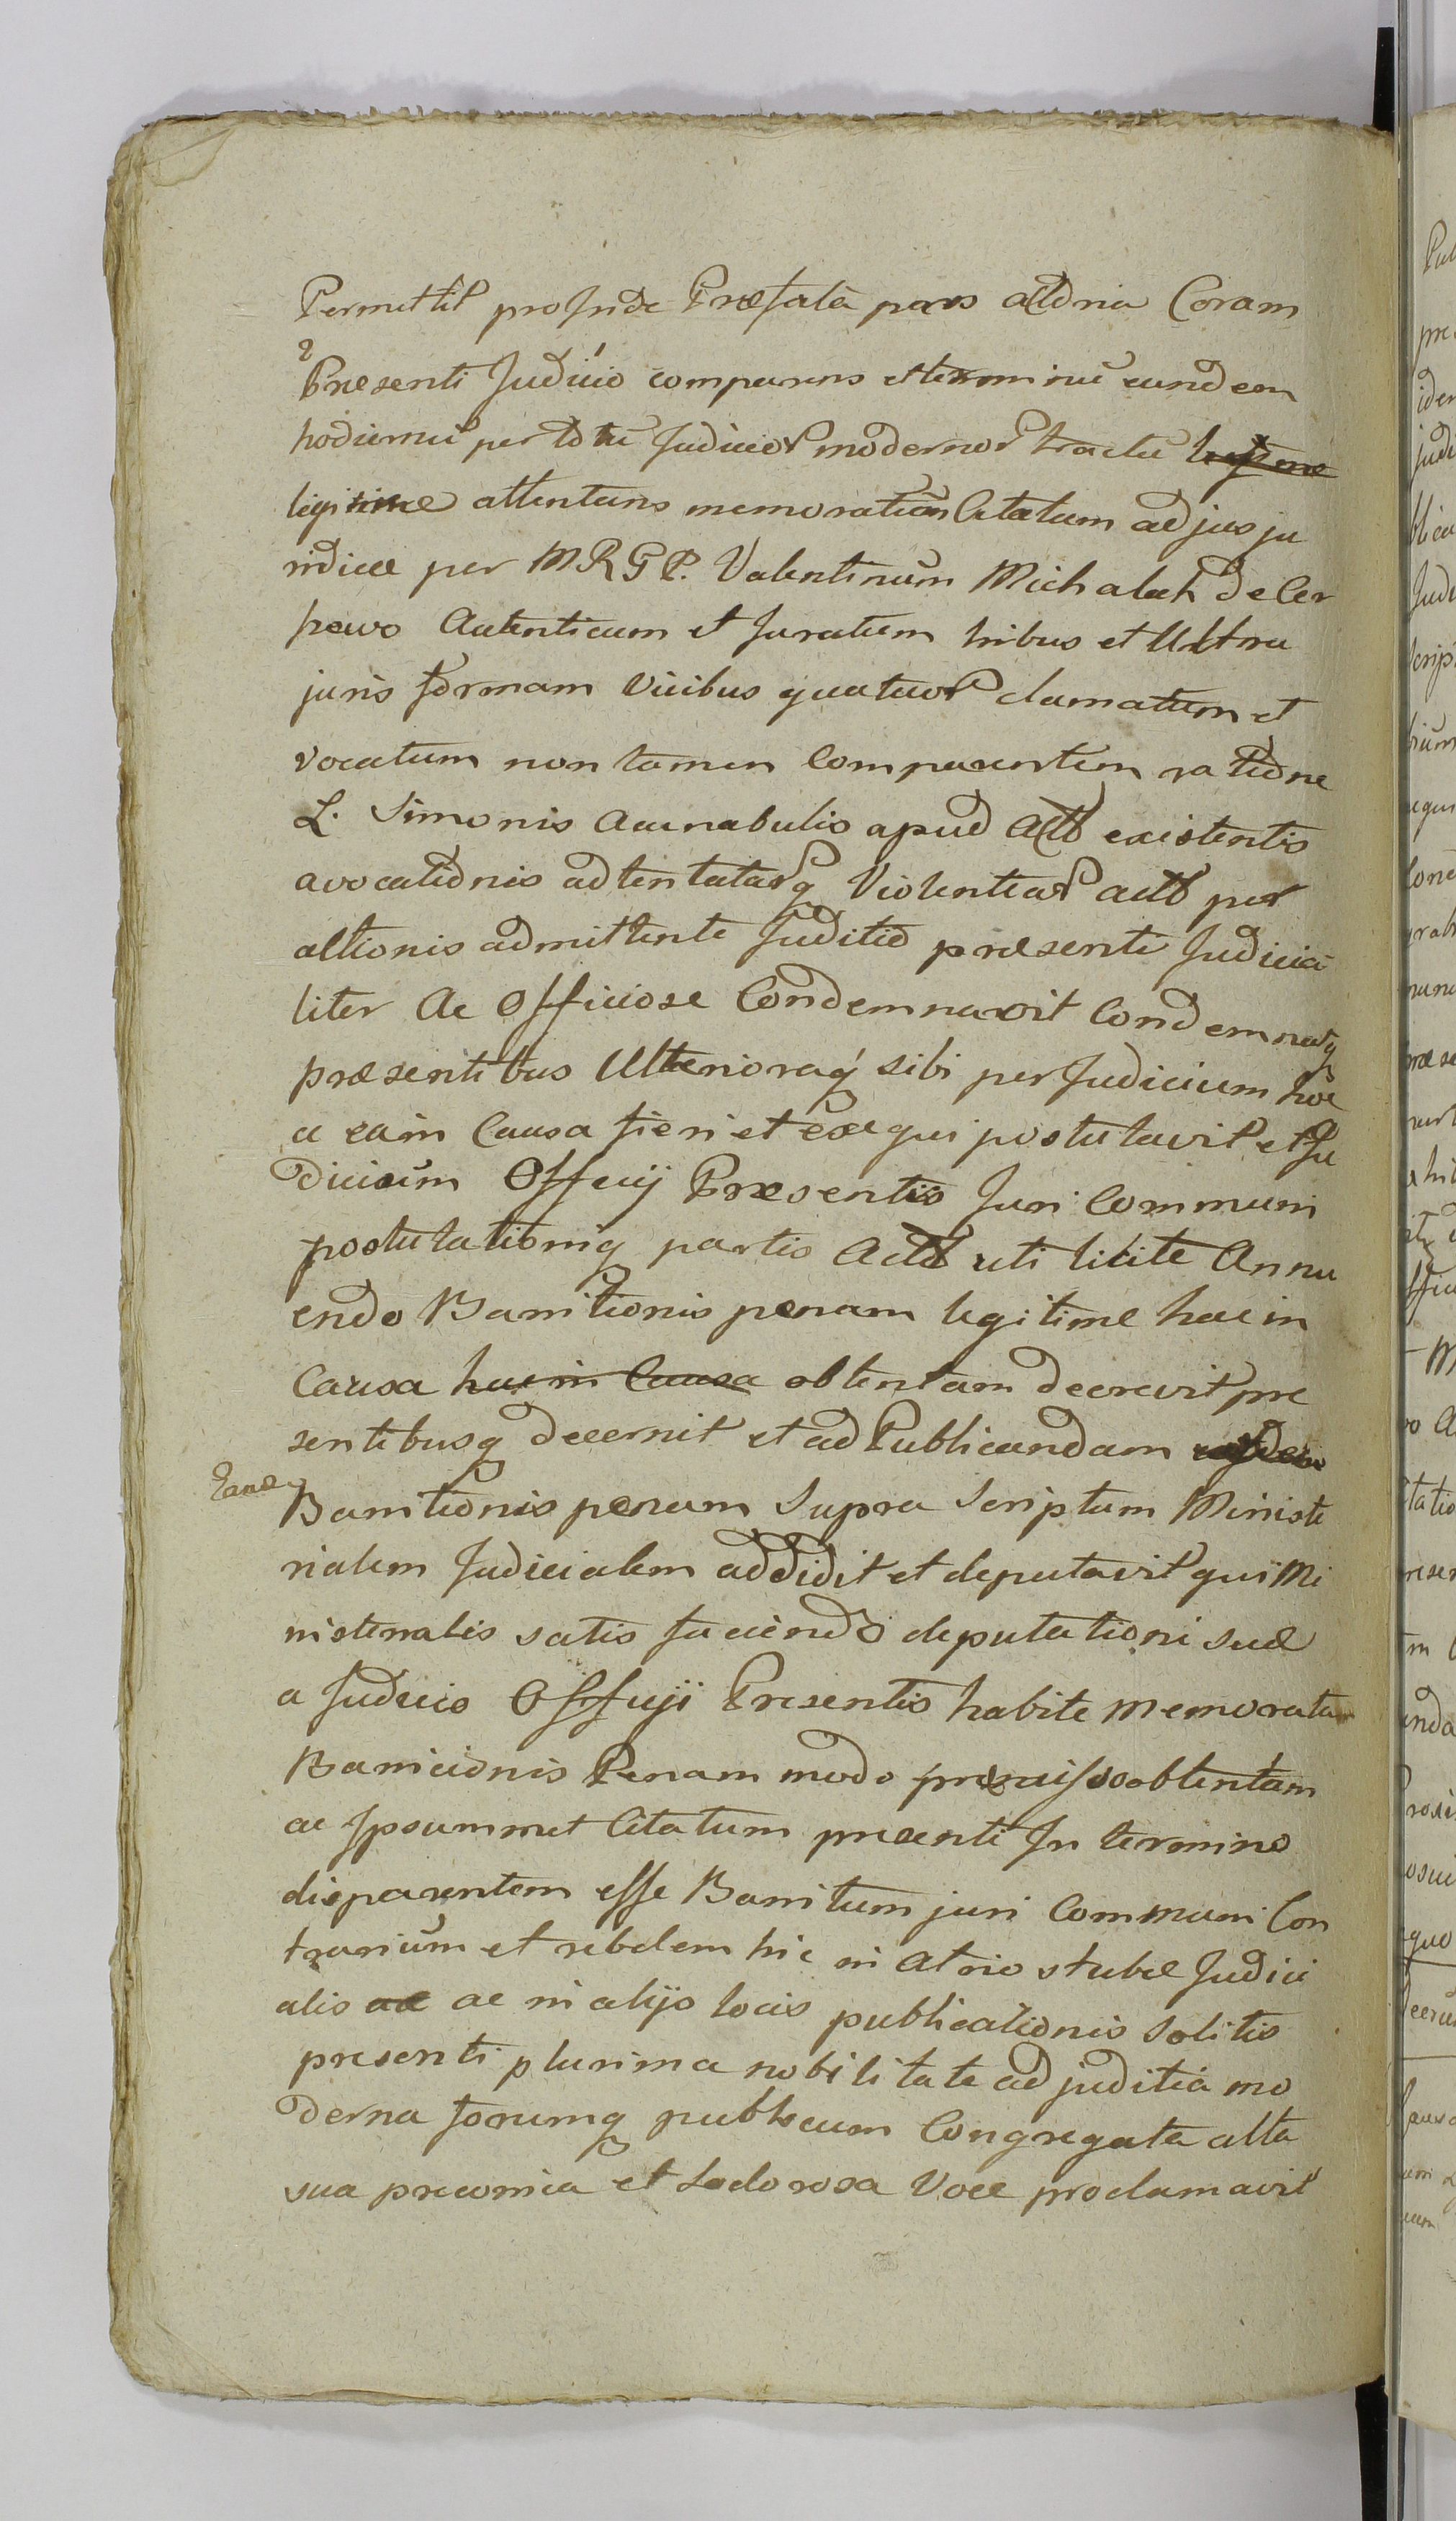 Permittit proinde Præfata pars actorea Coram
Præsenti Judicio comparens et terminū eundem
hodiernū per totū Judicior modernor tractū
legitime attentans memoratum Citatum ad jus ju
ridice per MRGP. Valentinum Michalek de Cer
Autenticum et Juratum tribus et Ultra
juris formam Vicibus quatuor clamatum et
vocatum non tamen Comparentem ratione
L. Simonis apud Act existentis
avocationis adtentatarq Violentiar act per
actionis admittente Juditio præsenti Judicia
liter Ac Officiose Condemnavit Condemnatq
præsentibus Ulterioraq sibi per Judicium hoc
a eam Causa fieri et exequi postulavit et Ju
dicium Officij Præsentis Juri Communi
postulationiq partis Act uti licite Annu
endo Banitionis penam legitime hac in
Causa hac in Causa obtentam decrevit pre
sentibusq decernit et ad Publicandam
Eand
Banitionis penam Supra Scriptum Ministe
rialem Judicialem addidit et deputavit qui Mi
nisterialis satis faciendo deputationi suæ
a Judicio Officij Presentis habite memoratam
Banicionis Penam modo præmisso obtentam
ac Ipsummet Citatum precenti In termino
disparentem esse Banitum juri Communi Con
trarium et rebelem hic in Atrio stubæ Judici
alis ac ac in alijs locis publicationis Solitis
presenti plurima nobilitate ad juditia mo
derna forumq publicum Congregata alta
sua preconica et voce proclamavit